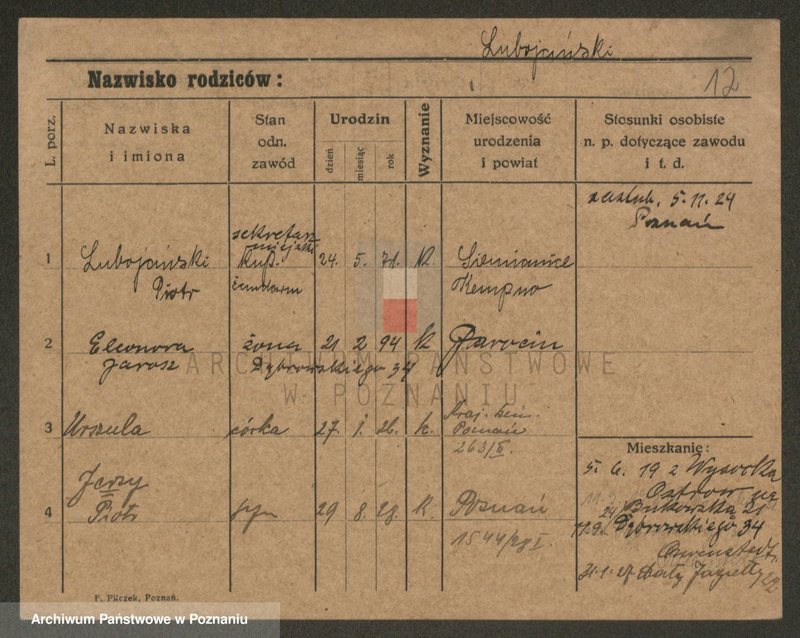 Lubojański
Nazwisko rodziców:
12
L. porz.
Nazwiska
i imiona
Stan
odn.
zawód
Urodzin
dzień
miesiąc
rok
Wyznanie
Miejscowość
urodzenia
i powiat
Stosunki osobiste
n. p. dotyczące zawodu
i t. d.
zaślub. 5. 11. 24
Poznań
sekretarz
miejski
1 Lubojański kup. 24. 5. 71. k. Siemianice
Piotr żandarm Kempno
2 Eleonora żona 21 2 94 k Jarocin
Jarosz Dąbrowskiego 34
ARCHIWUM PAŃSTWOWE
W POZNANIU
3 Urszula córka 27. 1. 26. k.
Poznań
263/II.
Jerzy
4 Piotr syn 29 8. 28. k. Poznań
1544/28 I.
Mieszkanie:
5. 6. 19 z Wysocka
Ostrów
24 Bukowska 21
Dąbrowskiego 34
31.1.27
F. Pilczek, Poznań.
Archiwum Państwowe w Poznaniu